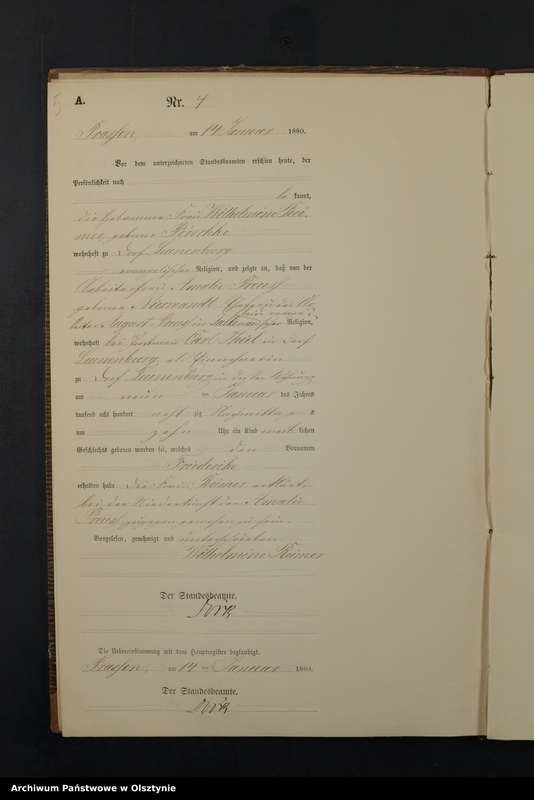 5
A.
Nr. 4
Frassen, am 14 Januar 1880.
Vor dem unterzeichneten Standesbeamten erschien heute, der
Persönlichkeit nach
be kannt,
die Hebamme Frau Wilhelmine Rei-
mer, geborene
wohnhaft zu Dorf Leunenburg
evangelischer Religion, und zeigte an, daß von der
Arbeiterfrau Amalie Preuß
geborene Ehefrau des Ar-
beiters August Preuß in Religion,
wohnhaft bei Carl Thiel in Dorf
Leunenburg, als
zu Dorf Leunenburg in
am neun ten Januar des Jahres
tausend acht hundert acht zig Nachmittags
um zehn Uhr ein Kind weib lichen
Geschlechts geboren worden sei, welches den Vornamen
Friederike
erhalten habe. Die Frau Reimer erklärt,
bei der Niederkunft der Amalie
Preuß zugegen gewesen zu sein.
Vorgelesen, genehmigt und unterschrieben
Wilhelmine Reimer
Der Standesbeamte.
Die Uebereinstimmung mit dem Hauptregister beglaubigt.
Frassen, am 14 ten Januar 1880.
Der Standesbeamte.
Archiwum Państwowe w Olsztynie